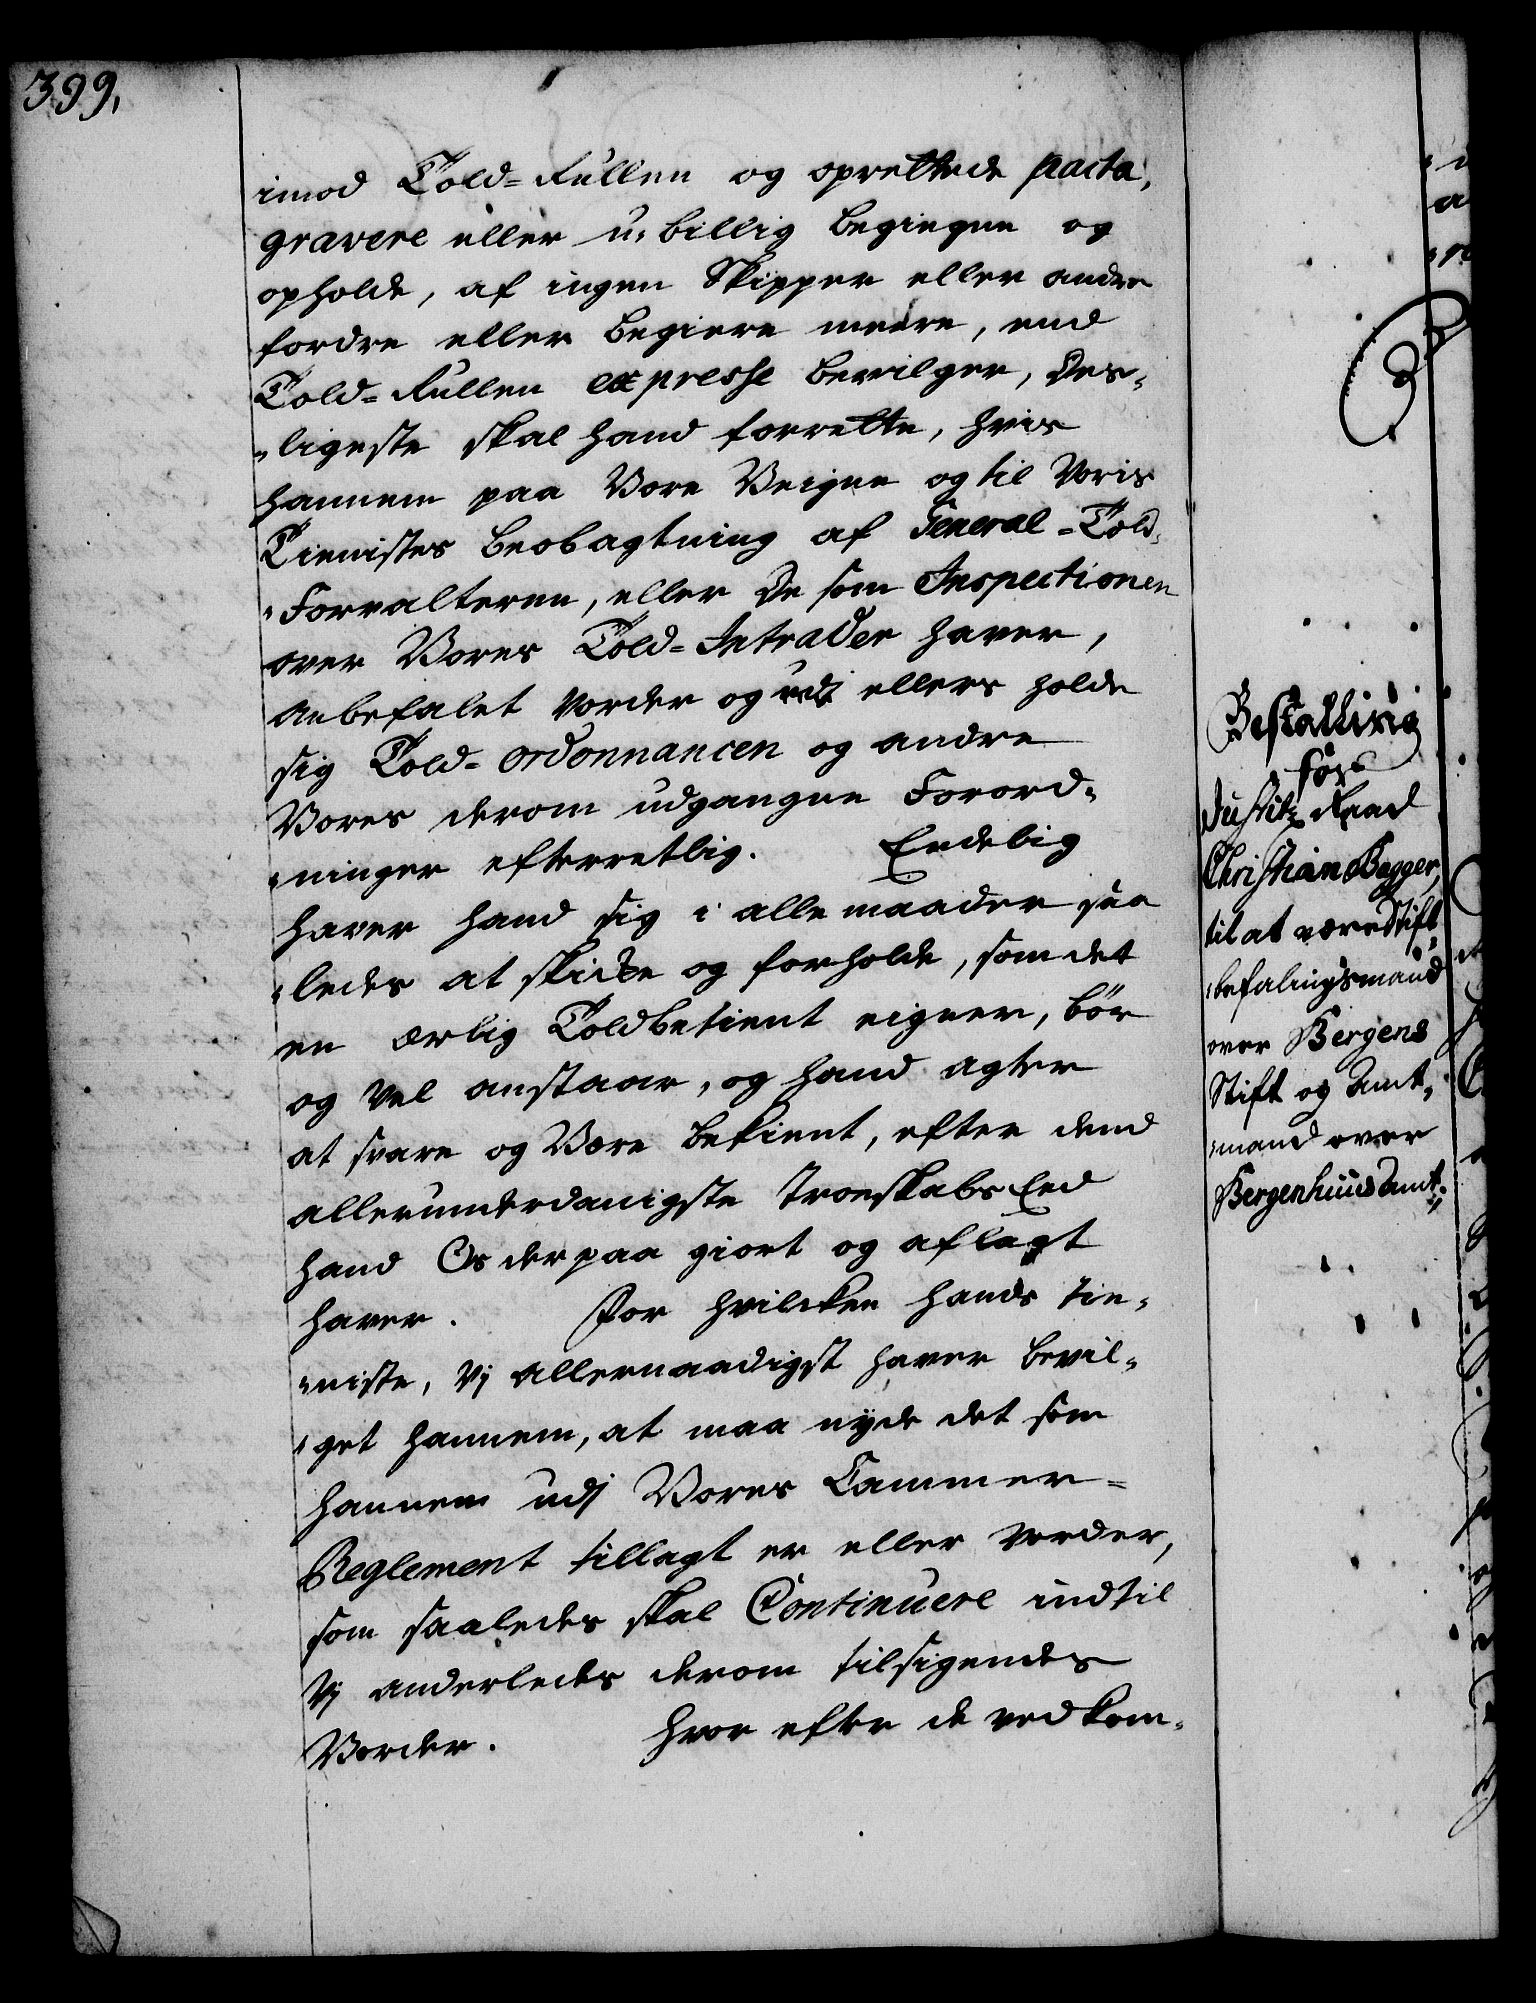 399.
imod Told-Rullen og oprettede pacta,
gravere eller u-billig begiegne og
opholde, af ingen Skipper eller andre
fordre eller begiere meere, end
Told-Rullen expresse bevilger, Des-
ligeste skal hand forrette, hvis
hannem paa Vore Veigne og til Voris
Tienistes beobagtning af General-Told-
Forvalteren, eller De som Inspectionen
over Vores Told-Intrader haver,
anbefalet vorder og udj ellers holde
sig Told-ordonnancen og andre
Vores derom udgangne Forord-
ninger efterretlig. Endelig
haver hand sig i alle maader saa
ledes at skicke og forholde, som det
en ærlig Toldbetient eigner, bör
og vel anstaar, og hand agter
at svare og Være bekient, efter dend
allerunderdanigste Troeskabs Eed
hand Os derpaa giort og aflagt
haver. For hvilcken hands tie-
niste, Vj allernaadigst haver bevil-
get hannem, at maa nyde det som
hannem udj Vores Cammer-
Reglement tillagt er eller vorder,
som saaledes skal Continuere indtil
Vj anderledes derom tilsigendes
Vorder. Hvor efter de vedkom-
Bestalling
for
Justitz Raad
Christian Bagger,
til at være Stift-
befalingsmand
over Bergens
Stift og Amt-
mand over
Bergenhuus Amt.